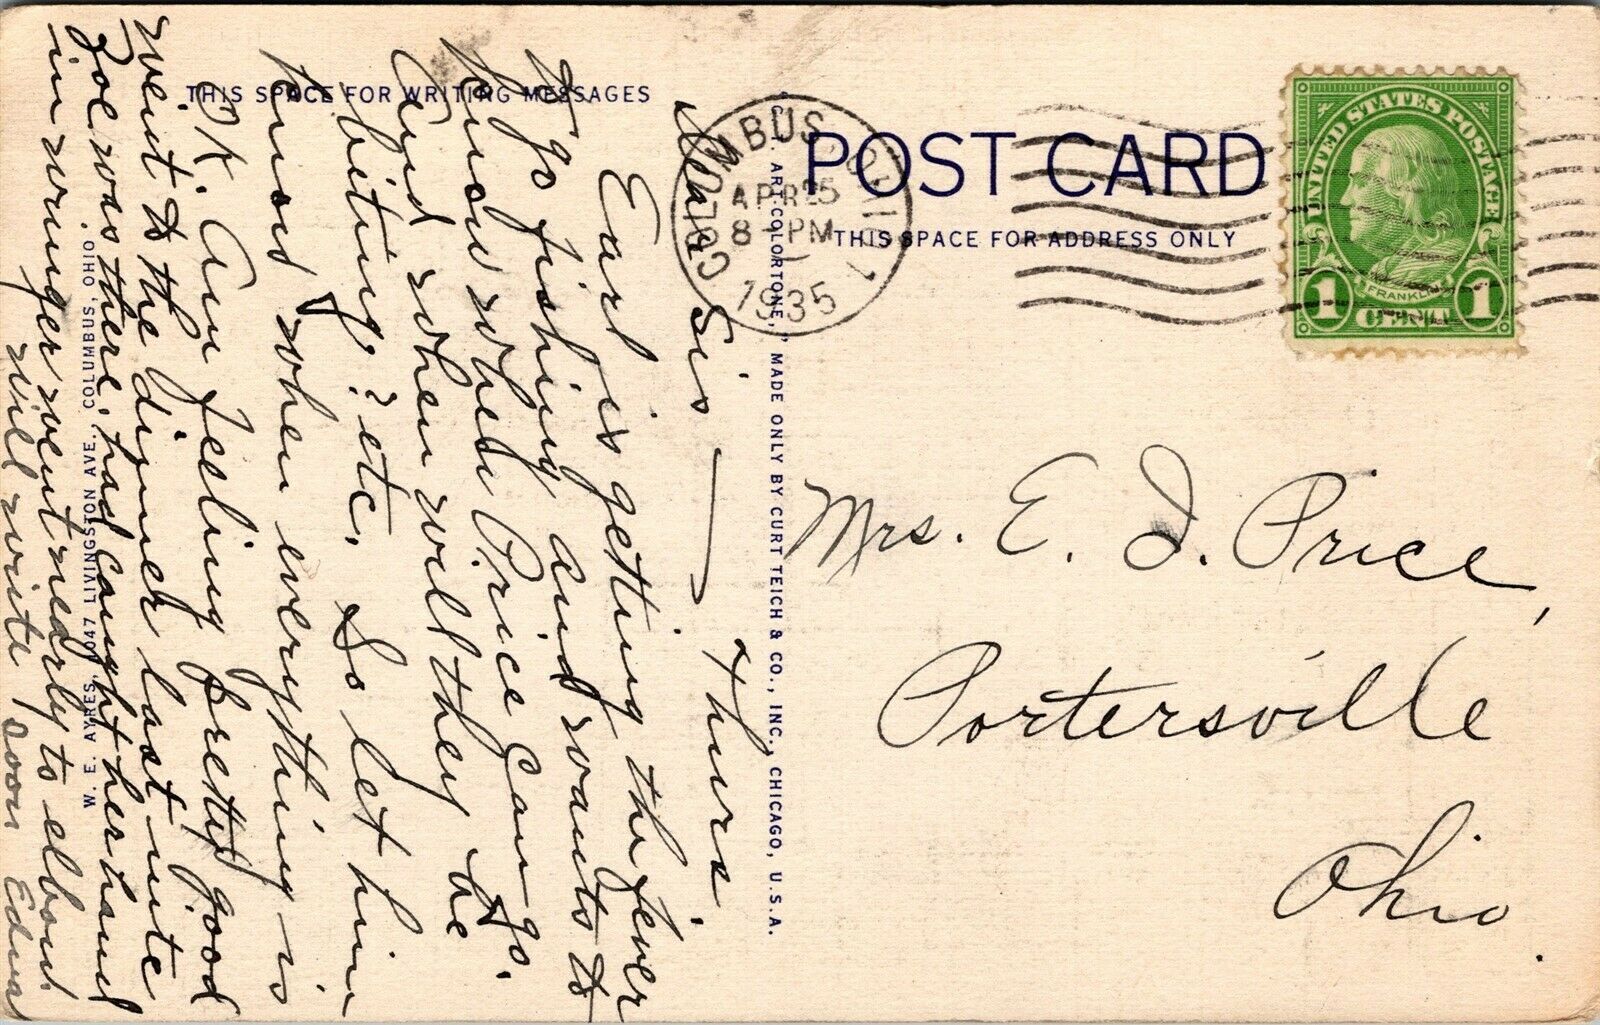 THIS SPACE FOR WRITING MESSAGES
Dear Sis — Thurs.
Earl is getting the fever
to go fishing and wants to
know when Price can go.
And when will they be
biting? etc. So let him
know when everything is
O.K. Am feeling pretty good
went to the dinner last nite
Zoe was there, had caught her hand
in wringer went nearly to elbow.
will write soon Edna
W. E. AYRES, 1047 LIVINGSTON AVE., COLUMBUS, OHIO
"C. T. ART-COLORTONE," MADE ONLY BY CURT TEICH & CO., INC., CHICAGO, U.S.A.
COLUMBUS, OHIO
APR 25
8-PM
1935
1
POST CARD
THIS SPACE FOR ADDRESS ONLY
UNITED STATES POSTAGE
FRANKLIN
1 CENT 1
Mrs. E. I. Price,
Portersville
Ohio.